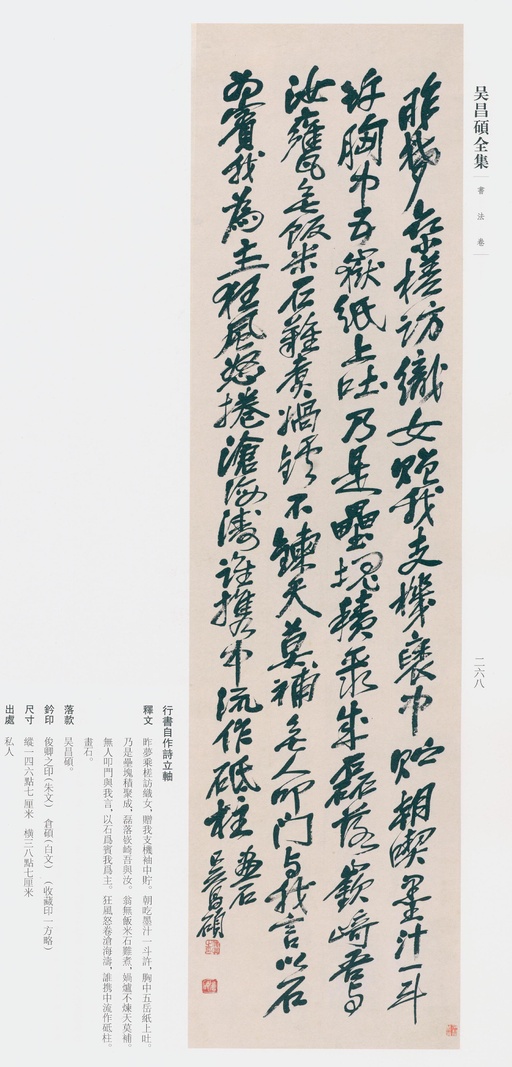 吴昌碩全集
書法卷
二六八
昨夢乘槎訪織女贈我支機褎中貯朝喫墨汁一斗
許胸中五嶽紙上吐乃是壘塊積聚成磊落嶔崎吾與
汝甕無飯米石難煮媧鑪不鍊天莫補無人叩門與我言以石
為賓我為主狂風怒捲滄海濤誰攜中流作砥柱
畫石
吴昌碩
行書自作詩立軸
釋文 昨夢乘槎訪織女，贈我支機袖中貯。朝吃墨汁一斗許，胸中五岳紙上吐。
乃是壘塊積聚成，磊落嶔崎吾與汝。翁無飯米石難煮，媧爐不煉天莫補。
無人叩門與我言，以石爲賓我爲主。狂風怒卷滄海濤，誰携中流作砥柱。
畫石。
落款 吴昌碩。
鈐印 俊卿之印（朱文） 倉碩（白文） （收藏印一方略）
尺寸 縱一四六點七厘米 橫三八點七厘米
出處 私人